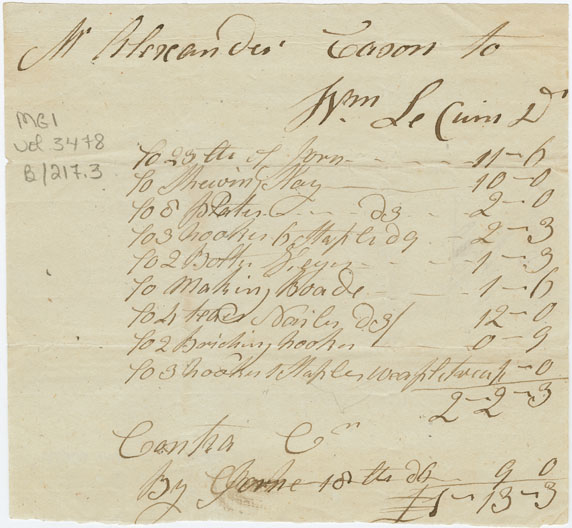 Mr Alexander Cason to
Wm Le Cain Dr
MG1
Vol 3478
B/217.3
To 23 lb of Iorn 11-6
To Shewing Slay 10-0
To 8 Plates d3 2-0
To 3 hookes & Staples d9 2-3
To 2 Bolts 1-3
To Making Boade 1-6
To 4 Nailes d3/ 12-0
To 2 Briching hookes 0-9
To 3 hookes & Staples 0
2-2-3
Contra Cr
By Iorne 18 lb d6 9 0
£1-13-3